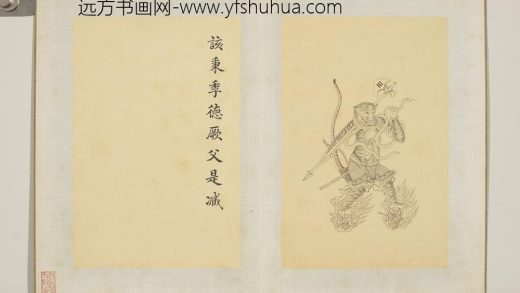 远方书画网-www.yfshuhua.com
該秉季德厥父是臧